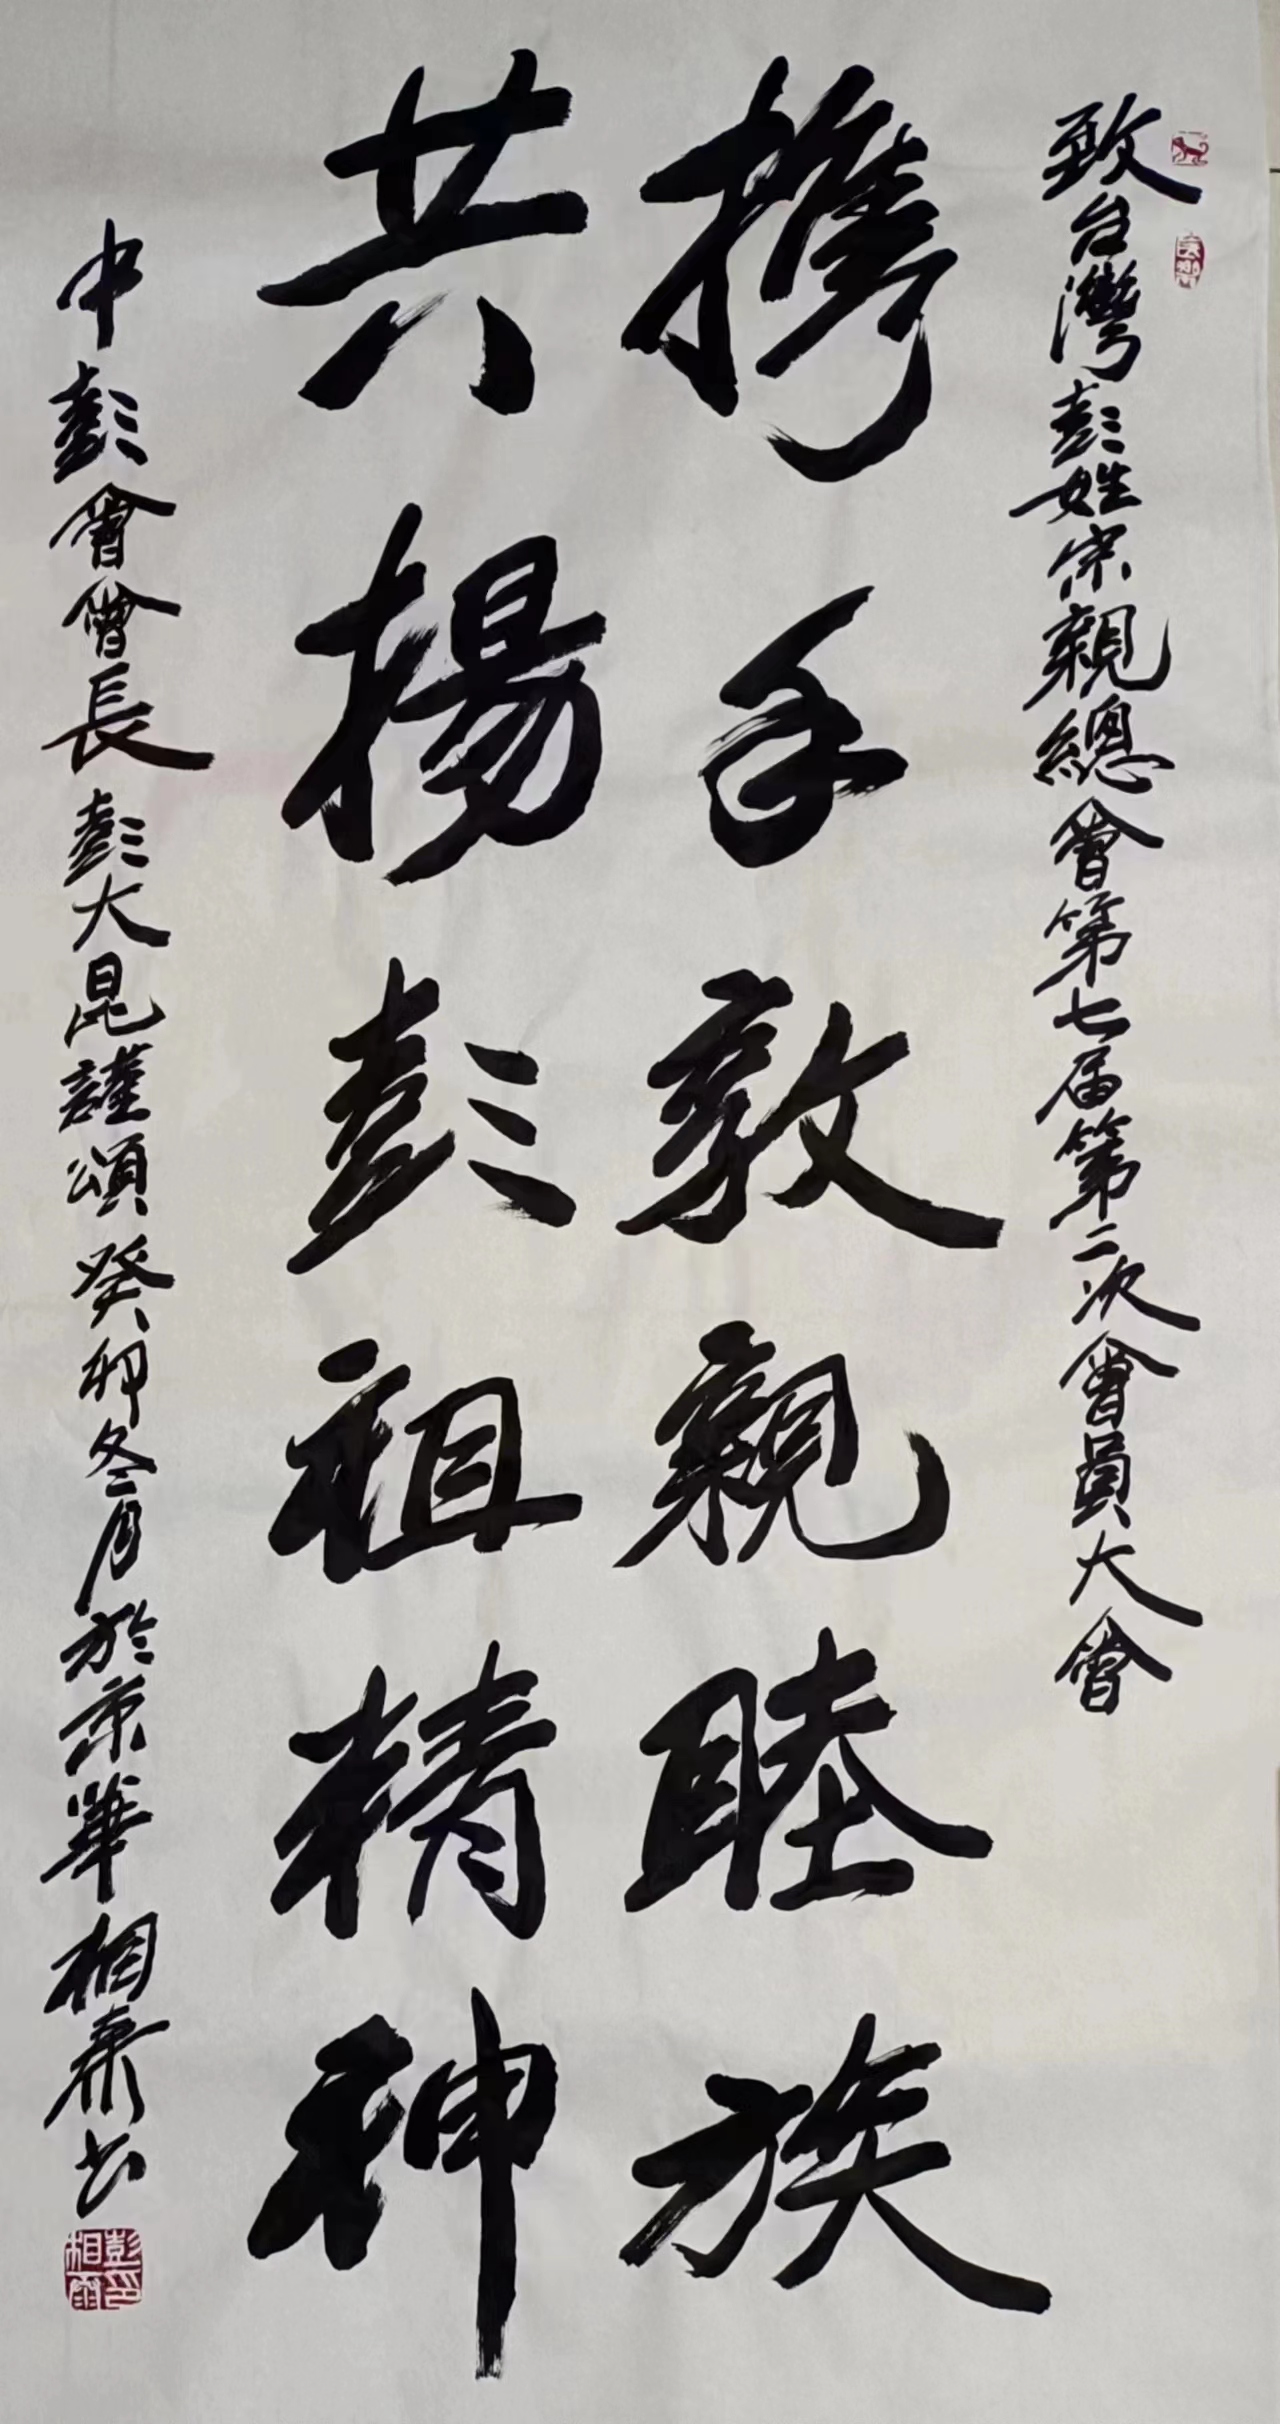 致台灣彭姓宗親總會第七届第二次會員大會
携手敦親睦族
共揚彭祖精神
中彭會會長彭大昆謹頌癸卯冬月於京華相爾书